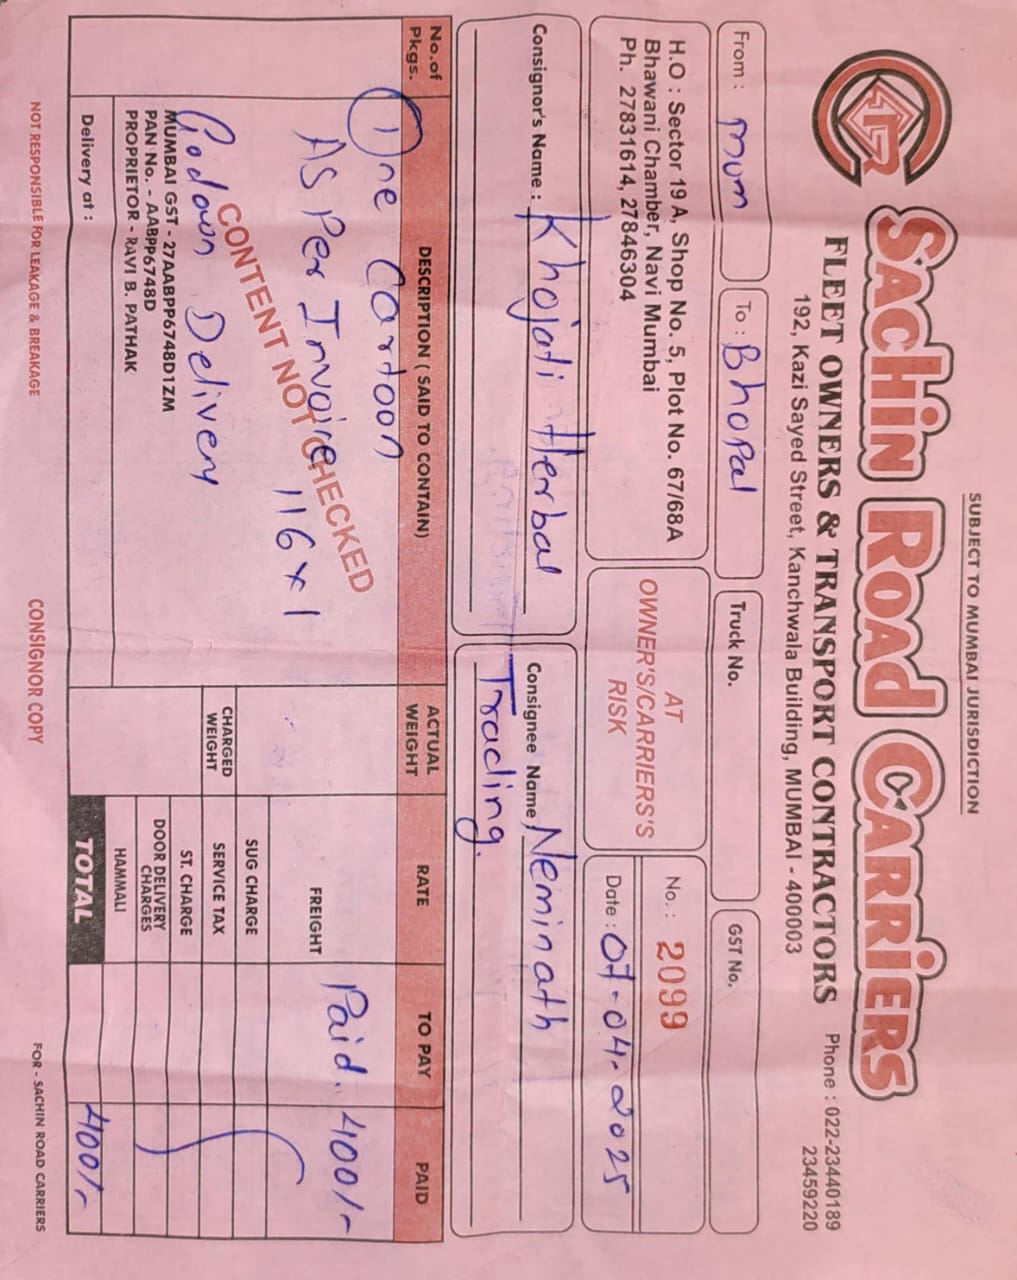 SUBJECT TO MUMBAI JURISDICTION
SACHIN ROAD CARRIERS
FLEET OWNERS & TRANSPORT CONTRACTORS
192, Kazi Sayed Street, Kanchwala Building, MUMBAI - 400003
Phone : 022-23440189
23459220
From : mum
To : Bhopal
Truck No.
GST No.
H.O : Sector 19 A, Shop No. 5, Plot No. 67/68A
Bhawani Chamber, Navi Mumbai
Ph. 27831614, 27846304
AT
OWNER'S/CARRIERS'S
RISK
No. : 2099
Date : 07-04-2025
Consignor's Name : Khojati Herbal
Consignee Name Neminath
Trading.
No. of Pkgs.
DESCRIPTION ( SAID TO CONTAIN)
ACTUAL WEIGHT
RATE
TO PAY
PAID
One Cartoon
AS Per Invoice 116 x 1
CONTENT NOT CHECKED
Godown Delivery
FREIGHT Paid. 400/-
SUG CHARGE
CHARGED WEIGHT
SERVICE TAX
ST. CHARGE
DOOR DELIVERY CHARGES
HAMMALI
TOTAL 400/-
MUMBAI GST - 27AABPP6748D1ZM
PAN No. - AABPP6748D
PROPRIETOR - RAVI B. PATHAK
Delivery at :
NOT RESPONSIBLE FOR LEAKAGE & BREAKAGE
CONSIGNOR COPY
FOR - SACHIN ROAD CARRIERS